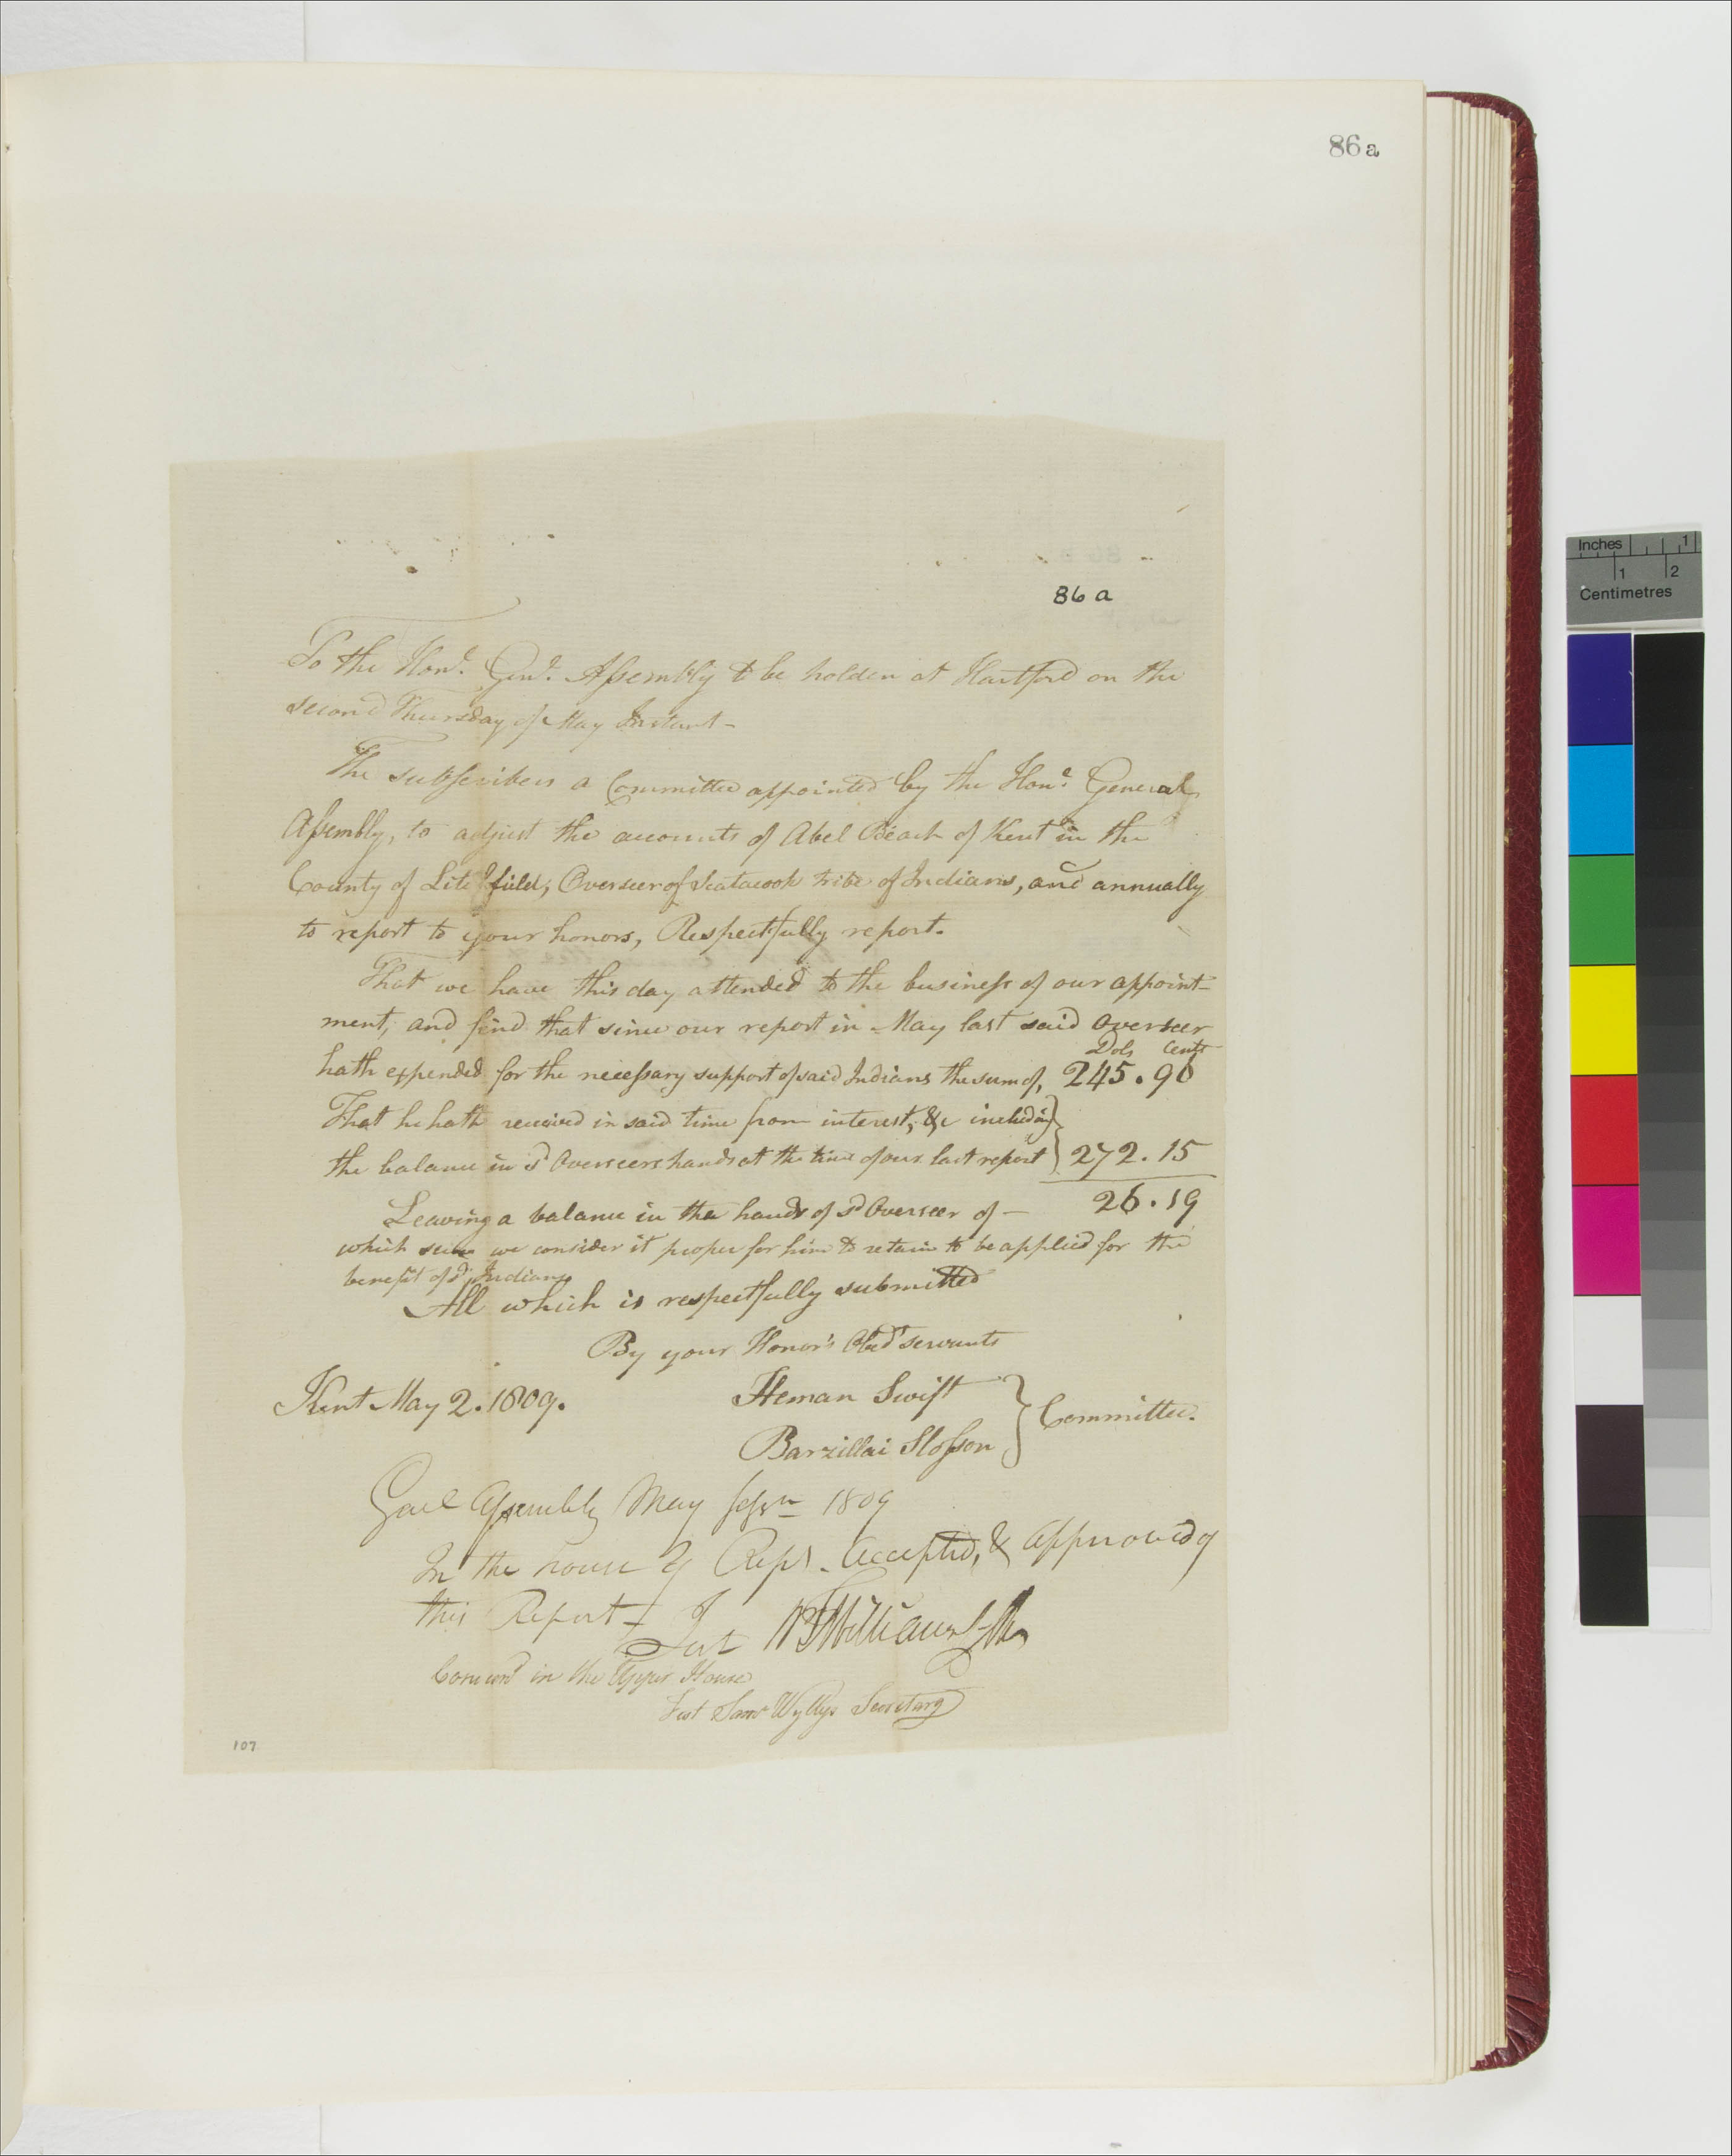 86a
86 a
To the Honᵉ. Genˡ. Assembly to be holden at Hartford on the
second Thursday of May Instant -
The subscribers a Committee appointed by the Honᵉ. General
Assembly, to adjust the accounts of Abel Beach of Kent in the
County of Litchfield, Overseer of Scatacook tribe of Indians, and annually
to report to your honors, Respectfully report.
That we have this day attended to the business of our appoint-
ment, and find that since our report in May last said Overseer
Dols Cents
hath expended for the necessary support of said Indians the sum of, 245.96
That he hath received in said time from interest, &c including
the balance in sᵈ Overseers hands at the time of our last report 272.15
Leaving a balance in the hands of sᵈ Overseer of — 26.19
which sum we consider it proper for him to retain to be applied for the
benefit of sᵈ. Indians
All which is respectfully submitted
By your Honor's Obedᵗ servants
Kent May 2. 1809.
Heman Swift
Barzillai Slosson
Committee.
Genl Assembly May Sessn 1809
In the house of Reps. Accepted, & approved of
this Report -
Test
Concurrᵈ in the Upper House
Test Samˡ Wyllys Secretary
107.
Inches 1
1 2
Centimetres